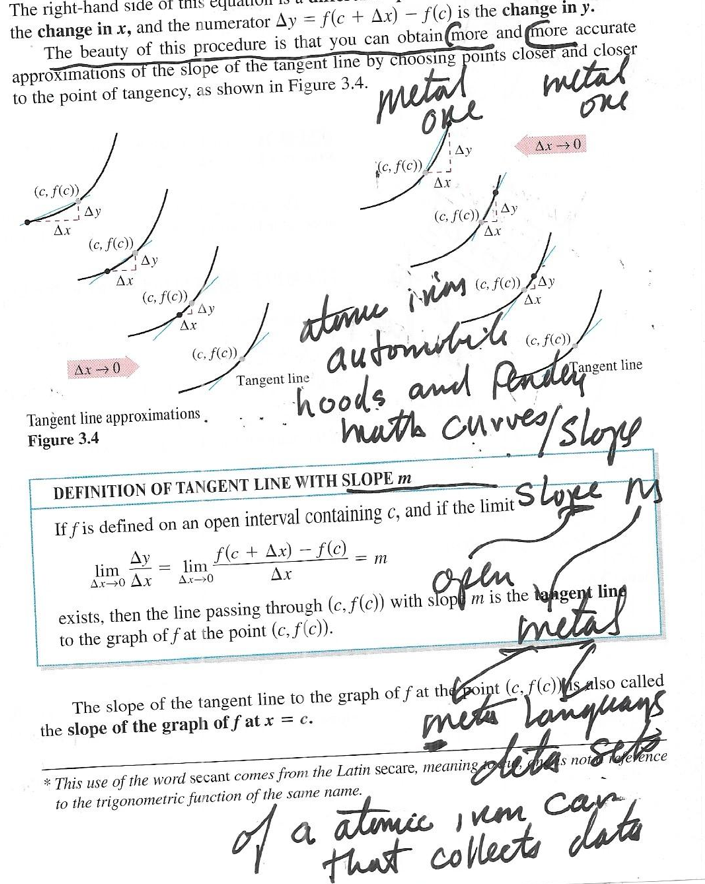 The right-hand side of this equation is a
the change in x, and the numerator Δy = f(c + Δx) − f(c) is the change in y.
The beauty of this procedure is that you can obtain more and more accurate
approximations of the slope of the tangent line by choosing points closer and closer
to the point of tangency, as shown in Figure 3.4.
metal
one
metal
one
(c, f(c))
Δy
Δx
(c, f(c))
Δy
Δx
(c, f(c))
Δy
Δx
(c, f(c))
Δx → 0
Tangent line
Δx → 0
(c, f(c))
Δy
Δx
(c, f(c))
Δy
Δx
(c, f(c))
Δy
Δx
(c, f(c))
Tangent line
atomic iron
automobile
hoods and
math curves/slope
Tangent line approximations
Figure 3.4
DEFINITION OF TANGENT LINE WITH SLOPE m
If f is defined on an open interval containing c, and if the limit
slope m
lim Δx→0 Δy/Δx = lim Δx→0 f(c + Δx) − f(c)/Δx = m
open
exists, then the line passing through (c, f(c)) with slope m is the tangent line
to the graph of f at the point (c, f(c)).
metal
The slope of the tangent line to the graph of f at the point (c, f(c)) is also called
the slope of the graph of f at x = c.
meta languages
data sets
* This use of the word secant comes from the Latin secare, meaning to cut, and is not a reference
to the trigonometric function of the same name.
of a atomic iron car
that collects data